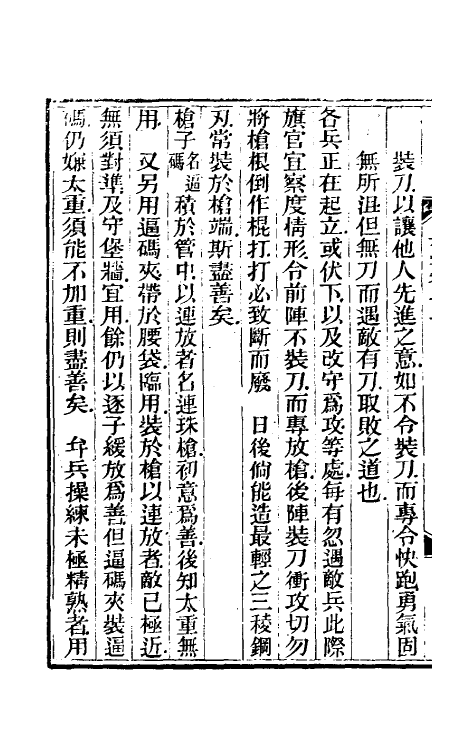 裝刀以讓他人先進之意如不令裝刀而專令快跑勇氣固
無所沮但無刀而遇敵有刀取敗之道也
各兵正在起立或伏下以及改守爲攻等處每有忽遇敵兵此際
旗官宜察度情形令前陣不裝刀而專放槍後陣裝刀衝攻切勿
將槍根倒作棍打打必致斷而廢　日後倘能造最輕之三稜鋼
刃常裝於槍端斯盡善矣
槍子名逼碼積於管中以連放者名連珠槍初意爲善後知太重無
用　又另用逼碼夾帶於腰袋臨用裝於槍以連放者敵已極近
無須對準及守堡牆宜用餘仍以逐子緩放爲善但逼碼夾裝逼
碼仍嫌太重須能不加重則盡善矣　弁兵操練未極精熟者用